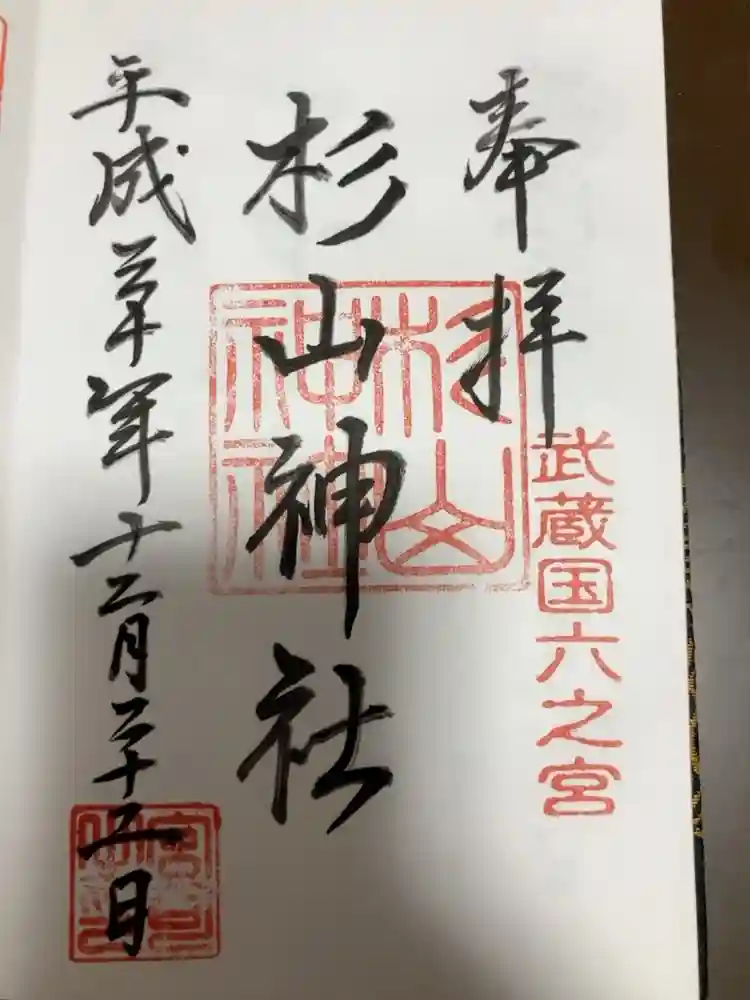 奉拝
武蔵国六之宮
杉山神社
杉山神社
平成三十年十二月二十二日
宮司之印